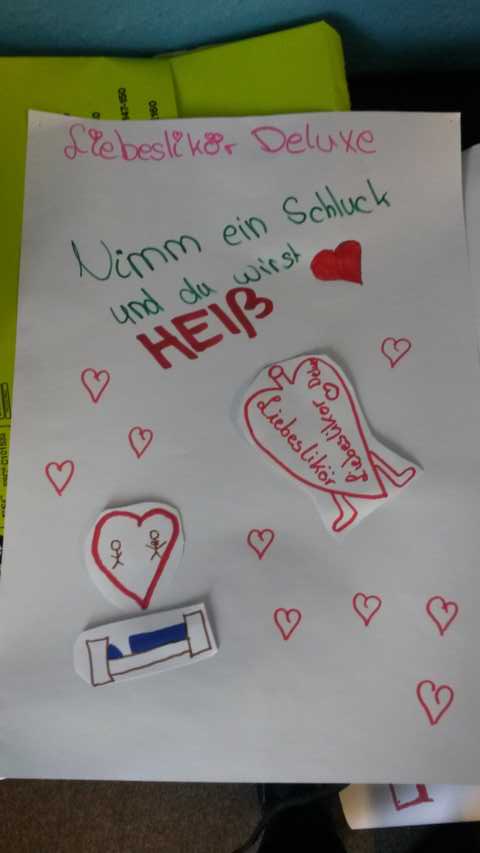 Liebeslikör Deluxe
Nimm ein Schluck
und du wirst
HEIß
Liebeslikör
Liebeslikör Delu